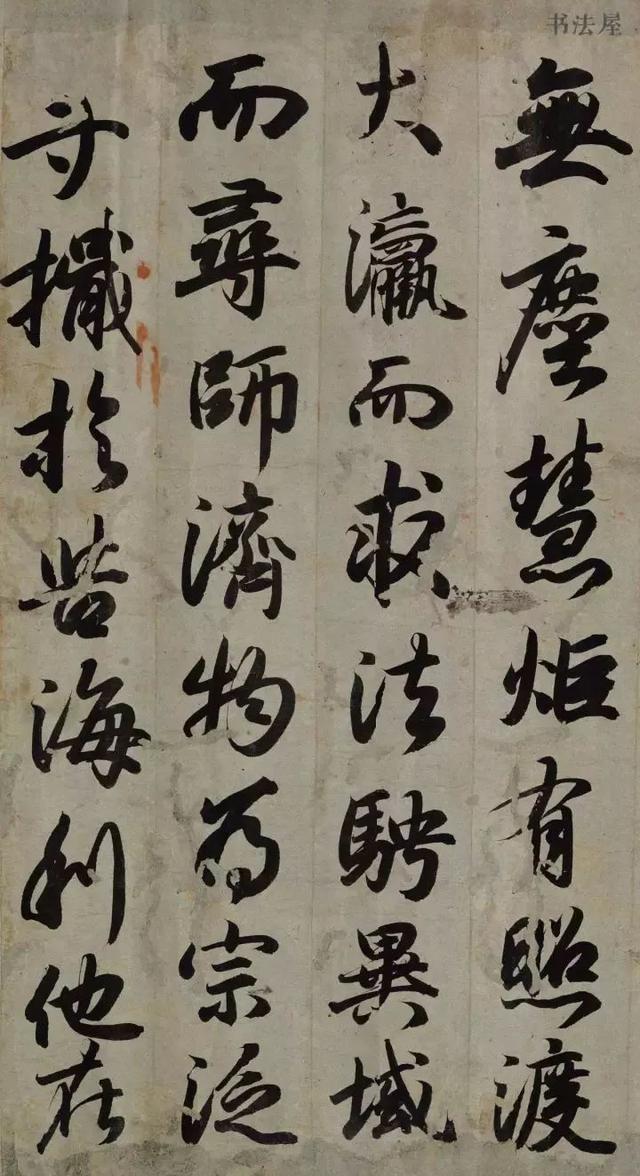 书法屋
無塵慧炬有照渡
大瀛而求法騁異域
而尋師濟物為宗泛
寸檝於苦海利他在